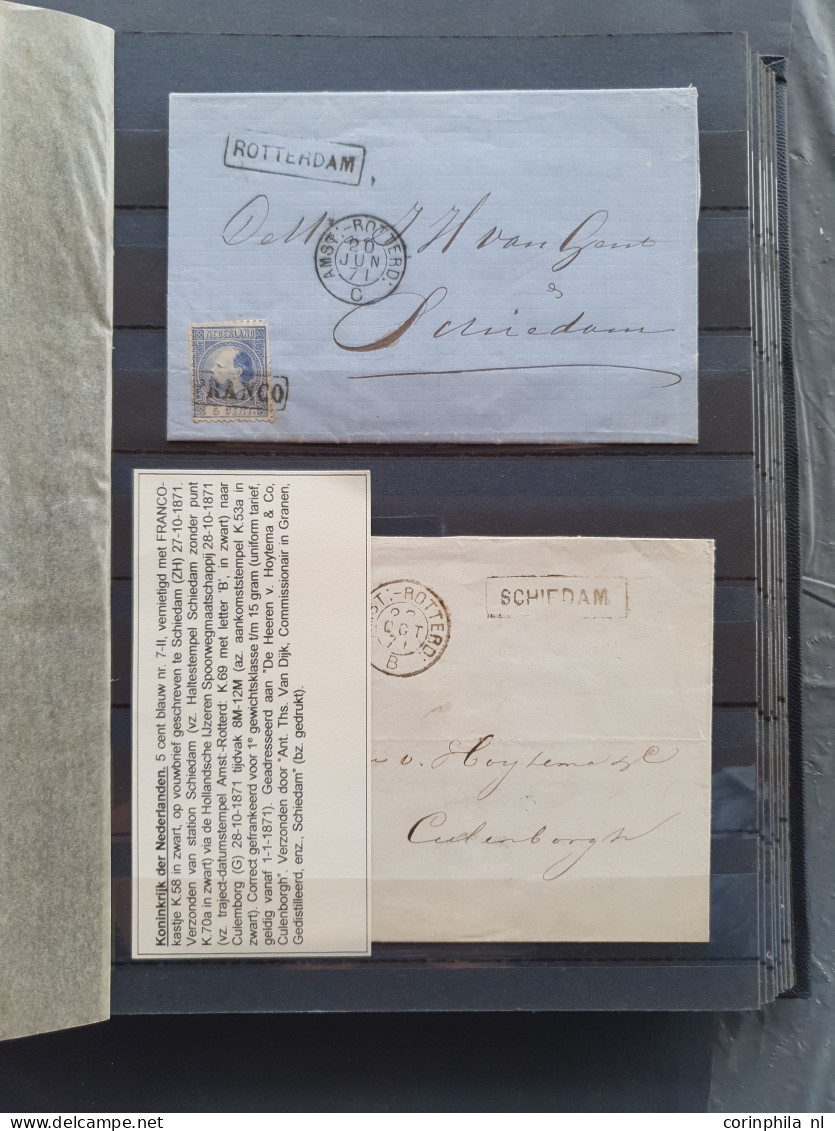 ROTTERDAM
AMST:-ROTTERD:
20
JUN
71
C
J H van Gent
Schiedam
NEDERLAND
FRANCO
5 CENT
Koninkrijk der Nederlanden. 5 cent blauw nr. 7-II, vernietigd met FRANCO-
kastje K.58 in zwart, op vouwbrief geschreven te Schiedam (ZH) 27-10-1871.
Verzonden van station Schiedam (vz. Haltestempel Schiedam zonder punt
K.70a in zwart) via de Hollandsche IJzeren Spoorwegmaatschappij 28-10-1871
(vz. traject-datumstempel Amst.-Rotterd: K.69 met letter 'B', in zwart) naar
Culemborg (G) 28-10-1871 tijdvak 8M-12M (az. aankomststempel K.53a in
zwart). Correct gefrankeerd voor 1e gewichtsklasse t/m 15 gram (uniform tarief,
geldig vanaf 1-1-1871). Geadresseerd aan "De Heeren v. Hoytema & Co,
Culenborgh". Verzonden door "Ant. Ths. Van Dijk, Commissionair in Granen,
Gedistilleerd, enz., Schiedam" (bz. gedrukt).
MST:-ROTTERD:
OCT
71
B
SCHIEDAM
v. Hoytema & C
Culenborgh
www.corinphila nl